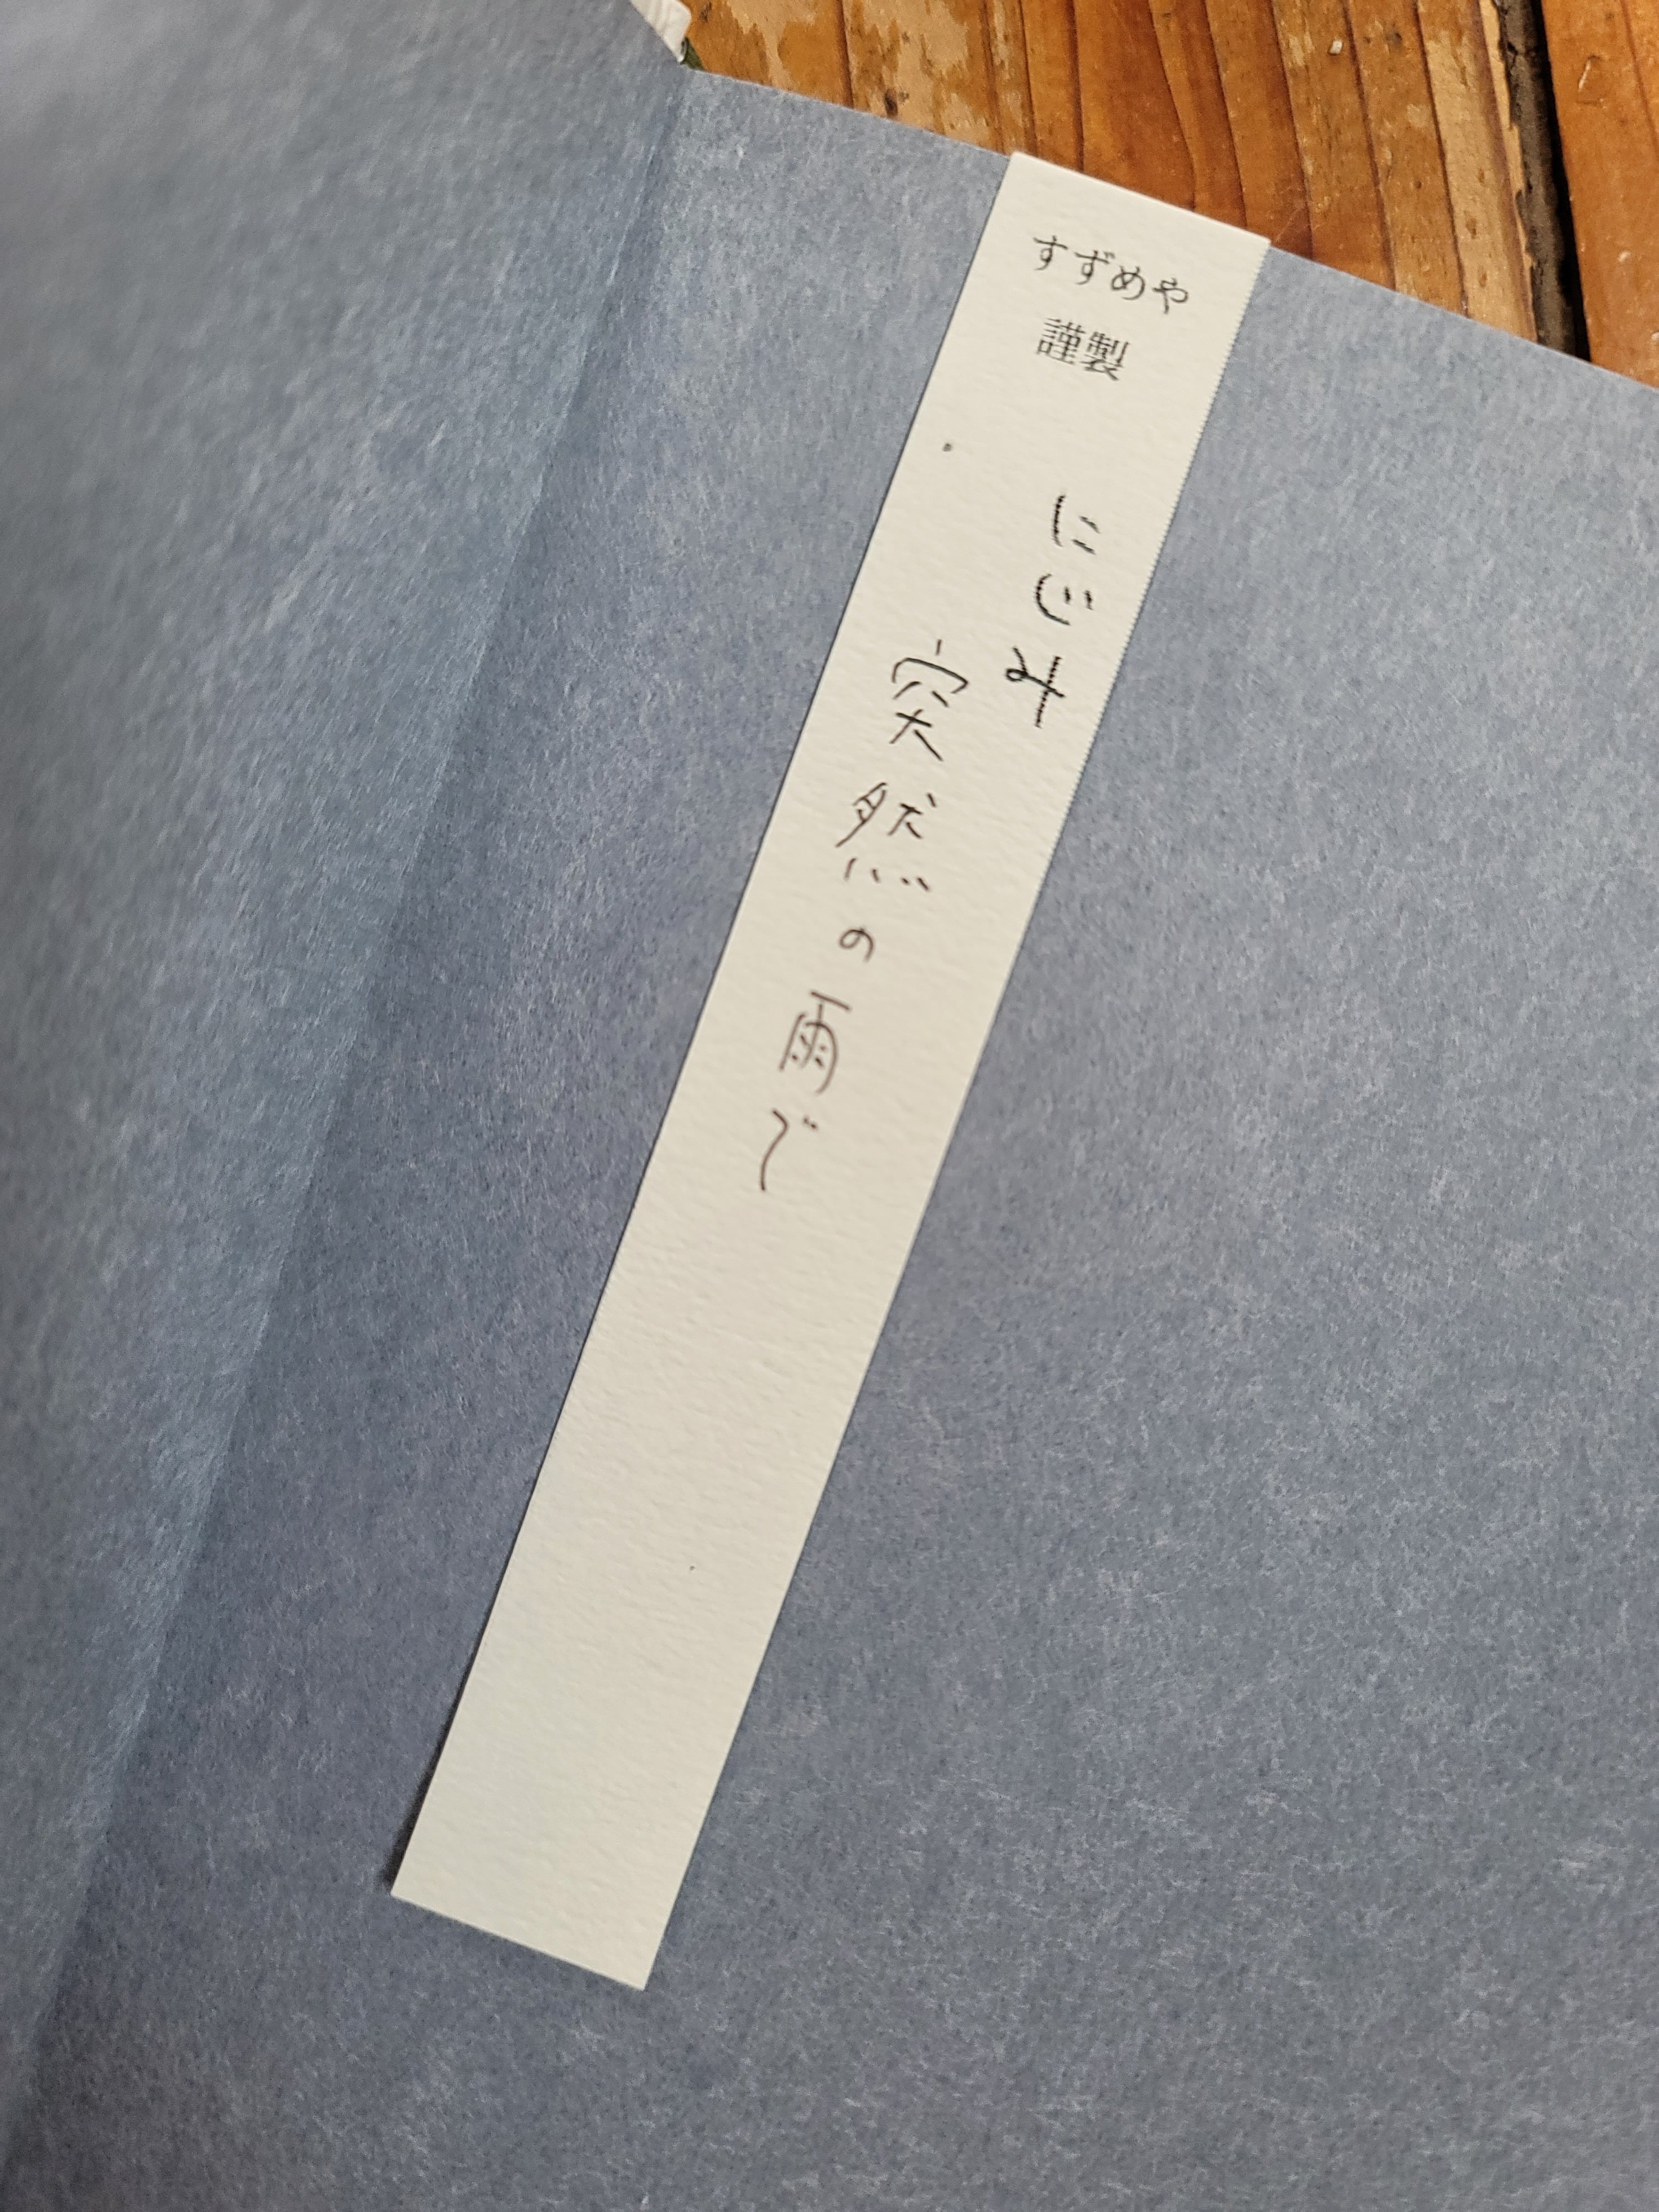 すずめや
謹製
にじみ
突然の雨で